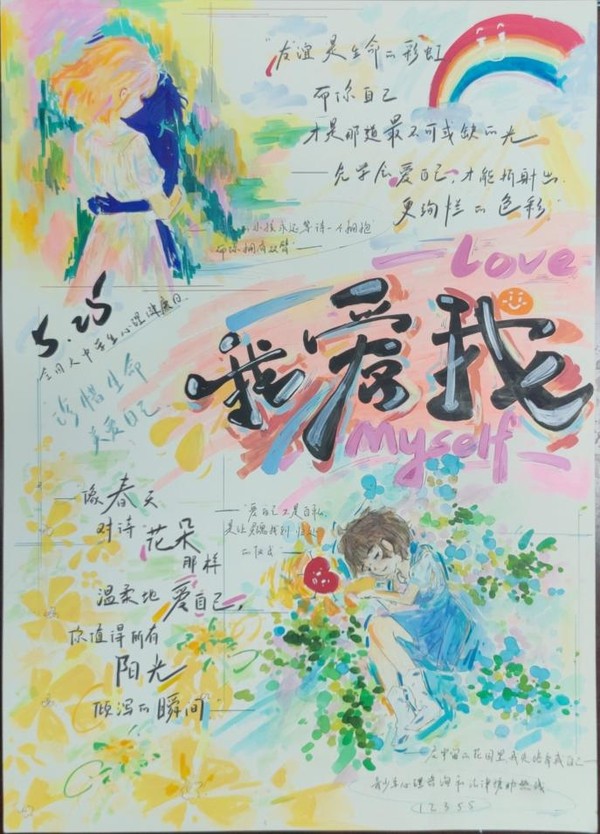 "友谊是生命的彩虹
而你自己
才是那道最不可或缺的光
先学会爱自己,才能折射出
更绚烂的色彩"
小孩永远等待一个拥抱
而你拥有双臂
Love
5.25
全国大中学生心理健康日
珍惜生命
关爱自己
我爱我
Myself
"像春天
对待花朵
那样
温柔地爱自己,
你值得所有
阳光
倾泻的瞬间"
"爱自己不是自私,
是让灵魂找到归处
的仪式
在宇宙的花园里我先培养我自己
青少年心理咨询和法律援助热线
12355